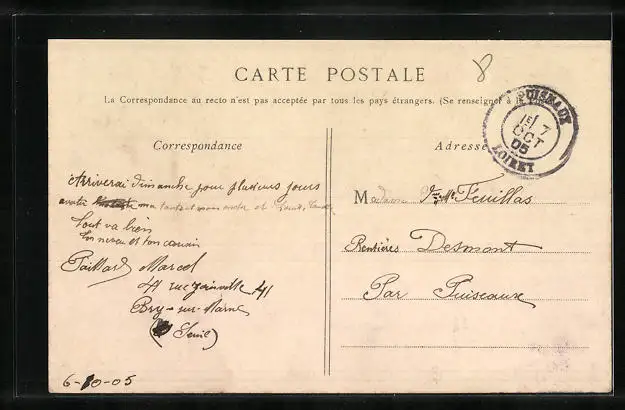 CARTE POSTALE
8
La Correspondance au recto n'est pas acceptée par tous les pays étrangers. (Se renseigner à la
PUISEAUX
7
OCT
05
LOIRET
Correspondance
Adresse
Arriverai dimanche pour plusieurs jours
avec ma tante et mon oncle et
tout va bien
ton neveu et ton cousin
Paillard Marcel
41 rue Joinville 41
Bry-sur-Marne
(Seine)
6-10-05
Madame Vve Feuillas
Rentière Desmont
Par Puiseaux